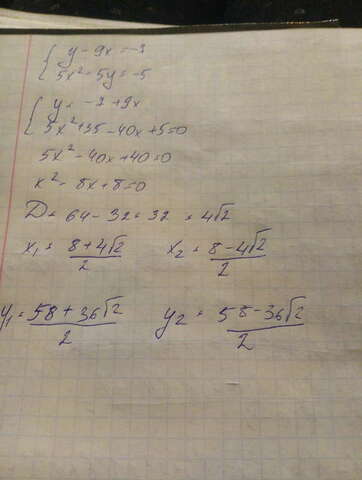 { y - 9x = -7
{ 5x² - 5y = -5
{ y = -7 + 9x
{ 5x² + 35 - 40x + 5 = 0
5x² - 40x + 40 = 0
x² - 8x + 8 = 0
D = 64 - 32 = 32 = 4√2
x₁ = (8 + 4√2)/2 x₂ = (8 - 4√2)/2
y₁ = (58 + 36√2)/2 y₂ = (58 - 36√2)/2